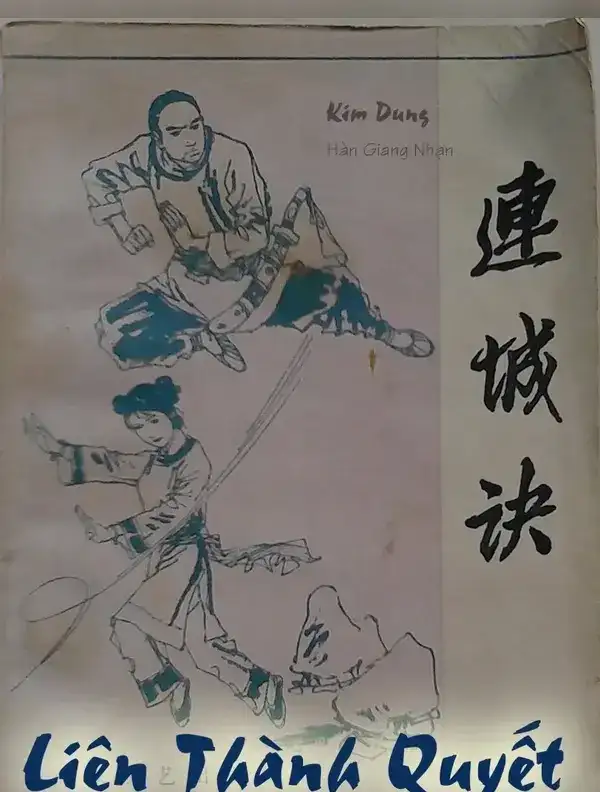 Kim Dung
Hàn Giang Nhạn
連城訣
Liên Thành Quyết